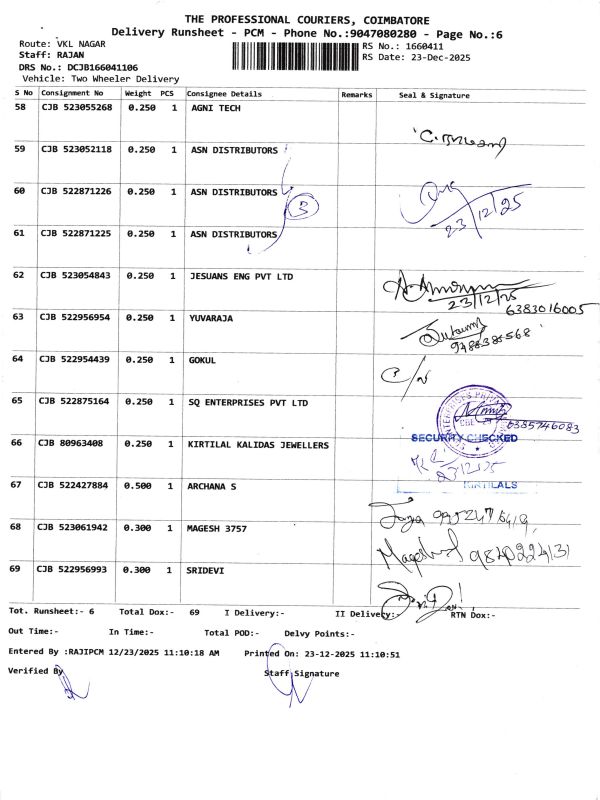 THE PROFESSIONAL COURIERS, COIMBATORE
Delivery Runsheet - PCM - Phone No.:9047080280 - Page No.:6
Route: VKL NAGAR
RS No.: 1660411
Staff: RAJAN
RS Date: 23-Dec-2025
DRS No.: DCJB166041106
Vehicle: Two Wheeler Delivery
S No Consignment No Weight PCS Consignee Details Remarks Seal & Signature
58 CJB 523055268 0.250 1 AGNI TECH
59 CJB 523052118 0.250 1 ASN DISTRIBUTORS
60 CJB 522871226 0.250 1 ASN DISTRIBUTORS
3
23/12/25
61 CJB 522871225 0.250 1 ASN DISTRIBUTORS
62 CJB 523054843 0.250 1 JESUANS ENG PVT LTD
23/12/25
6383016005
63 CJB 522956954 0.250 1 YUVARAJA
64 CJB 522954439 0.250 1 GOKUL
C/N
65 CJB 522875164 0.250 1 SQ ENTERPRISES PVT LTD
6385746083
66 CJB 80963408 0.250 1 KIRTILAL KALIDAS JEWELLERS
SECURITY CHECKED
23/12/25
KIRTILALS
67 CJB 522427884 0.500 1 ARCHANA S
68 CJB 523061942 0.300 1 MAGESH 3757
9840224131
69 CJB 522956993 0.300 1 SRIDEVI
Tot. Runsheet:- 6 Total Dox:- 69 I Delivery:- II Delivery:- RTN Dox:-
Out Time:- In Time:- Total POD:- Delvy Points:-
Entered By :RAJIPCM 12/23/2025 11:10:18 AM Printed On: 23-12-2025 11:10:51
Verified By Staff Signature